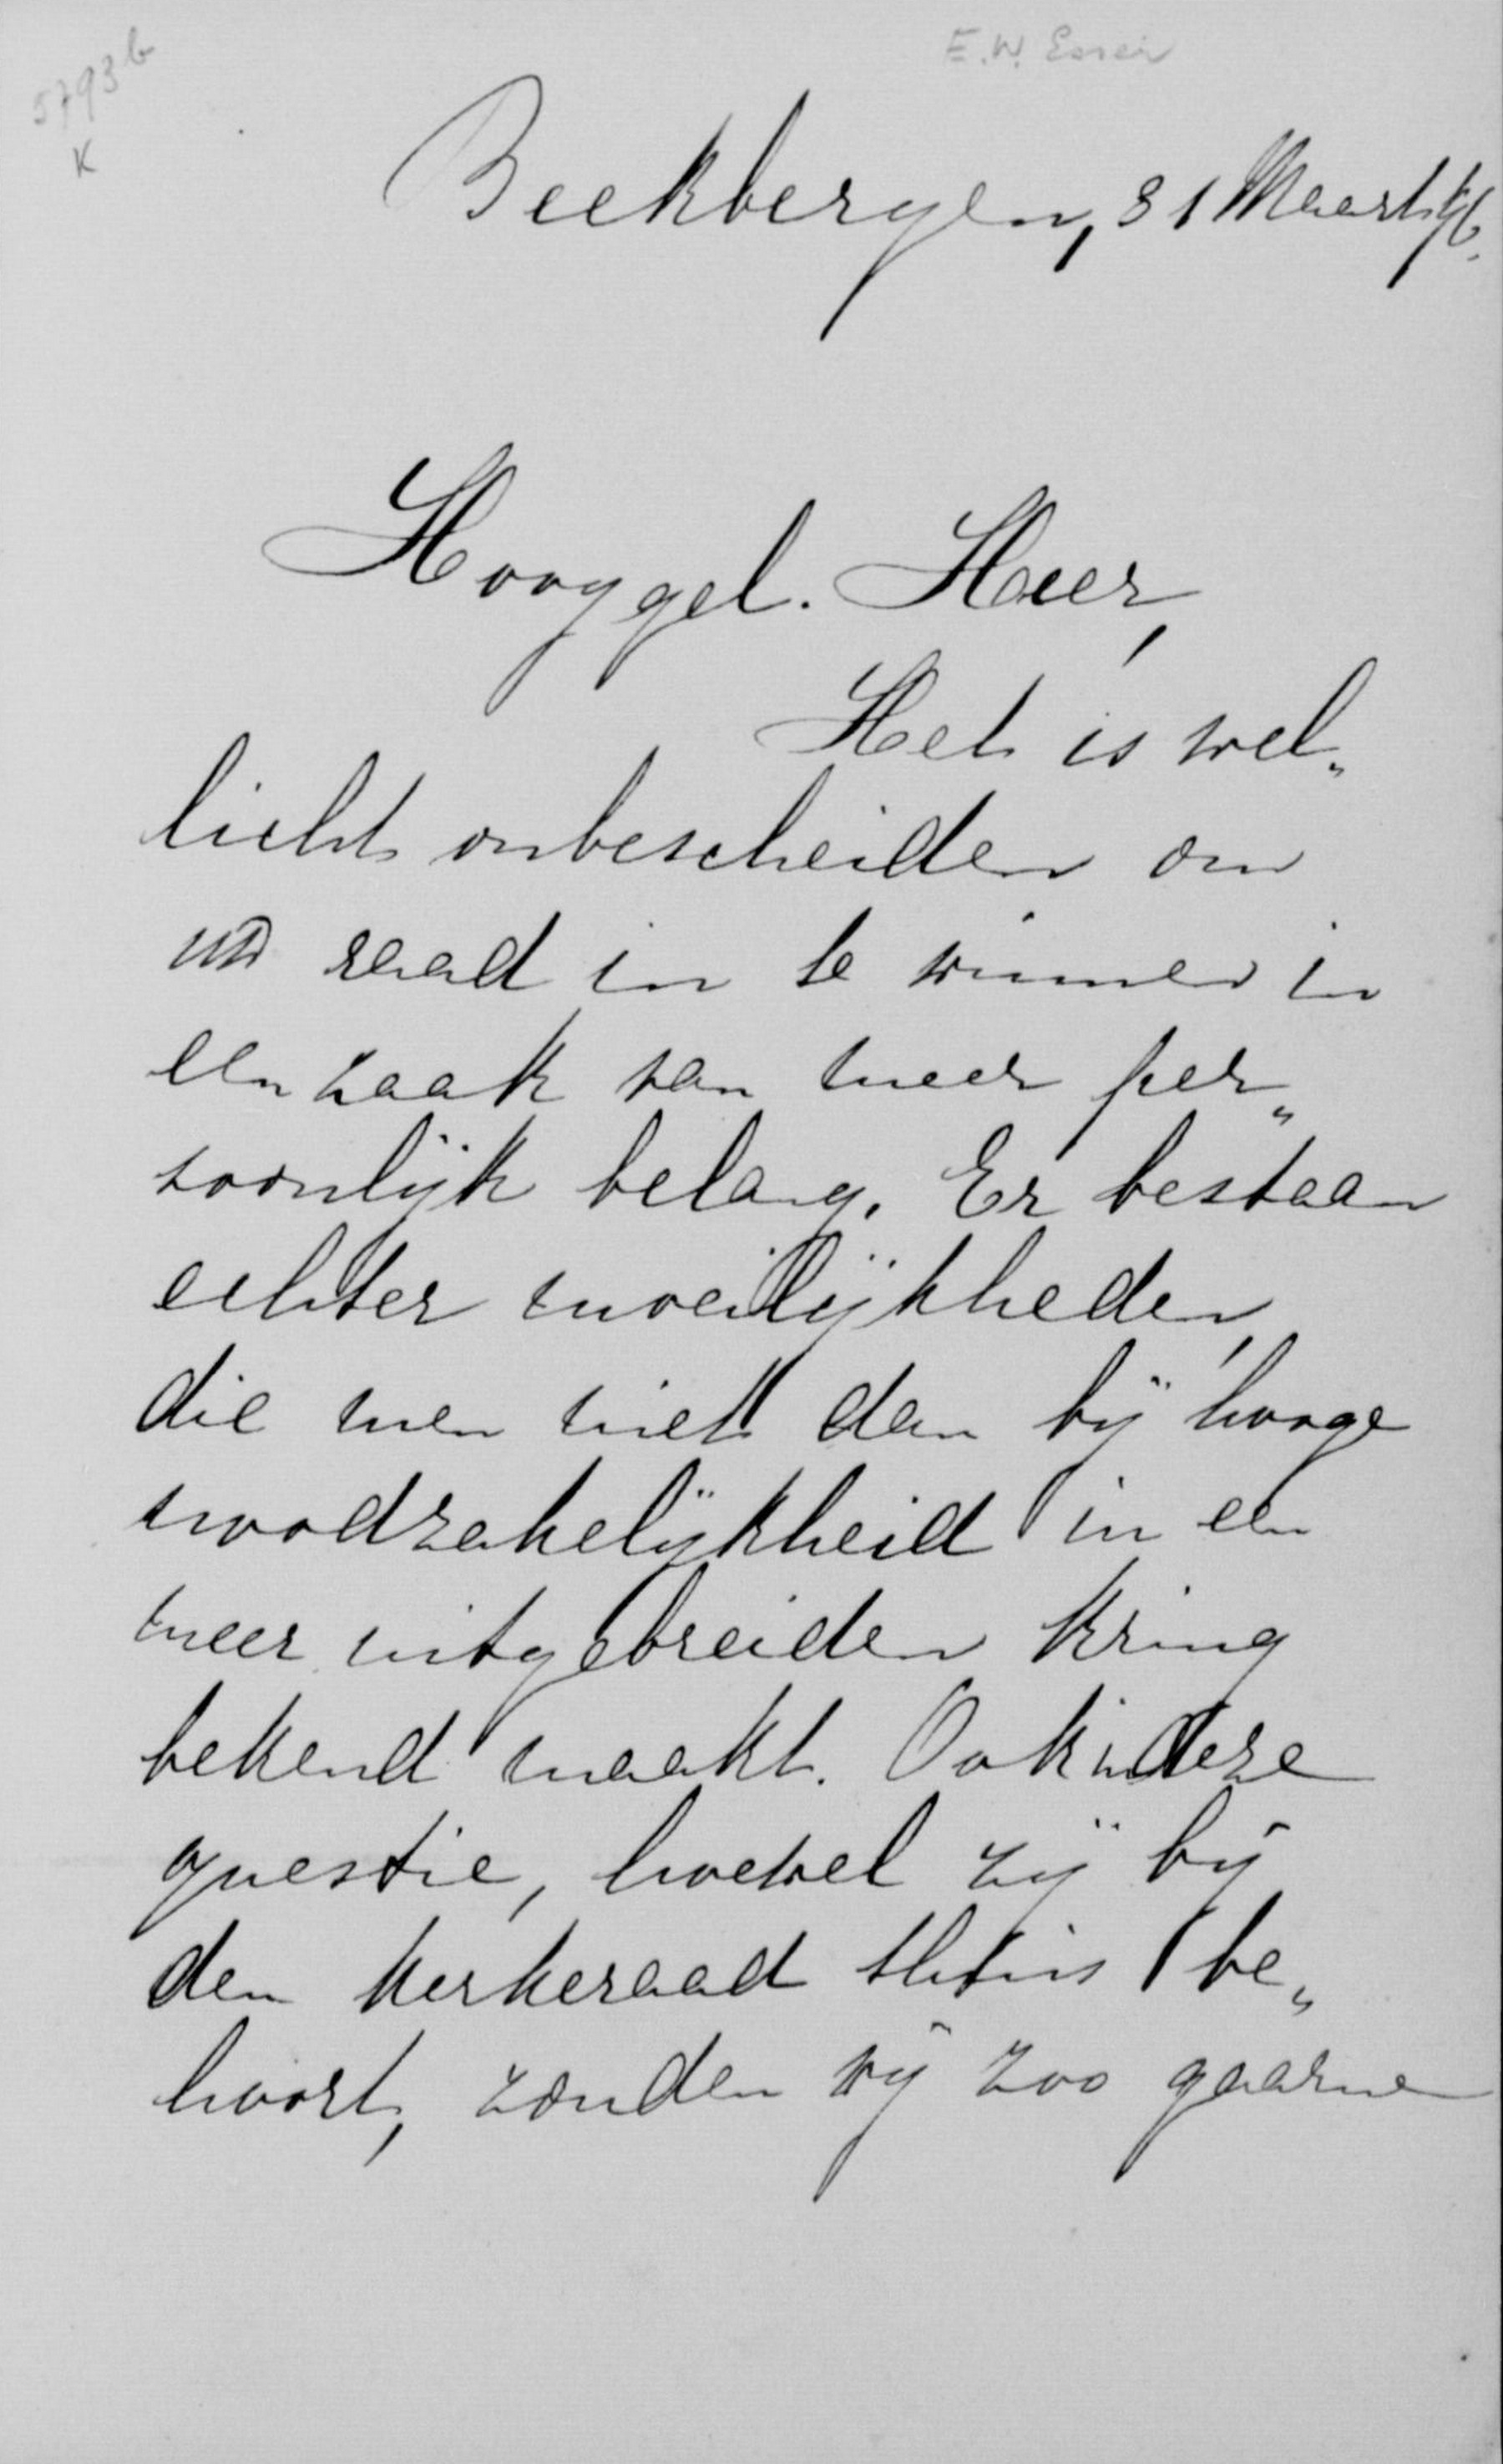 E.W. Esser
5793b
K
Beekbergen, 31 Maart 96.
Hooggel. Heer,
Het is wel„
licht onbescheiden om
uw raad in te winnen in
een zaak van meer per„
soonlijk belang. Er bestaan
echter moeilijkheden,
die men niet dan bij hooge
noodzakelijkheid in een
meer uitgebreiden kring
bekend maakt. Ook deze
questie, hoewel zij bij
den kerkeraad thuis be„
hoort, zonden wij zoo gaarne